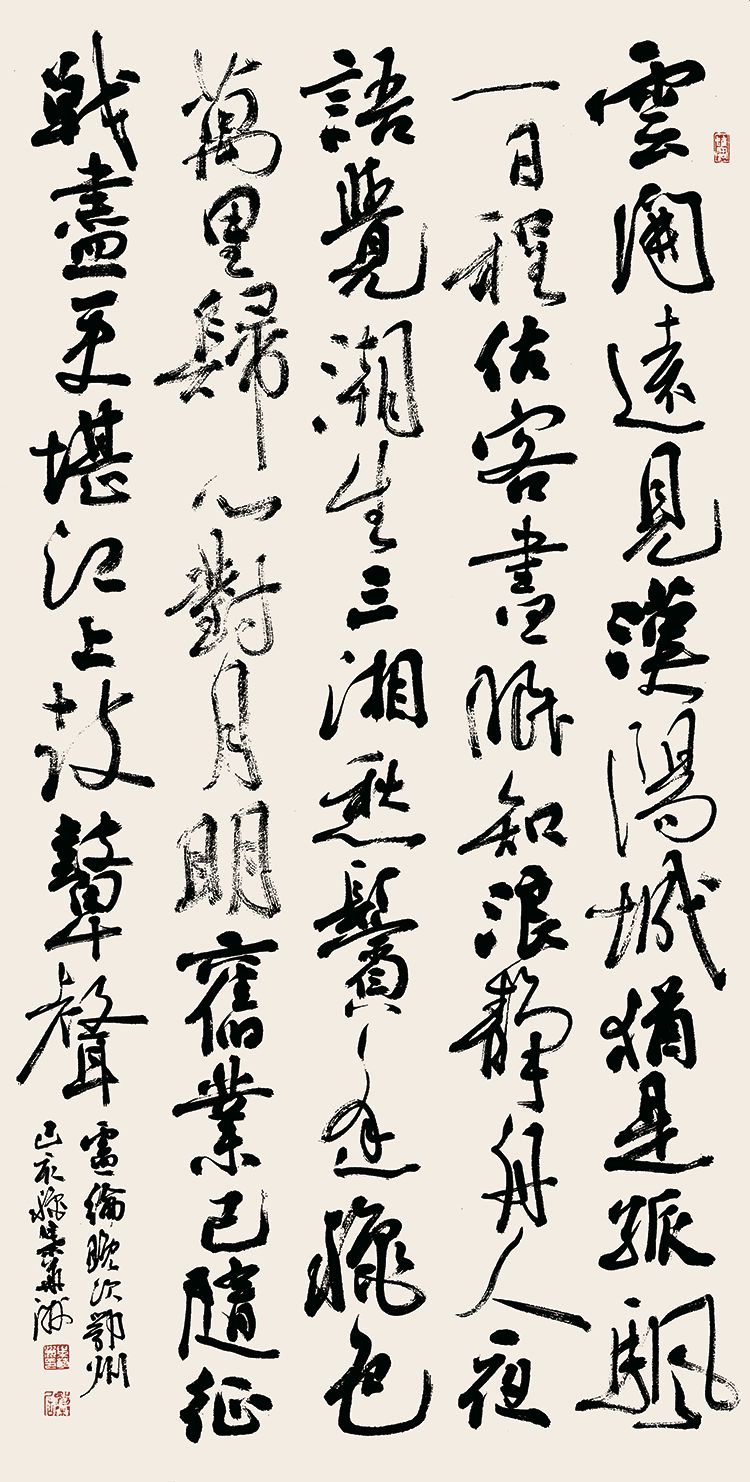 雲開遠見漢陽城猶是孤颿
一日程估客晝眠知浪靜舟人夜
語覺潮生三湘愁鬢逢穐色
萬里歸心對月明舊業已隨征
戰盡更堪江上鼓鼙聲
盧綸晚次鄂州
己亥